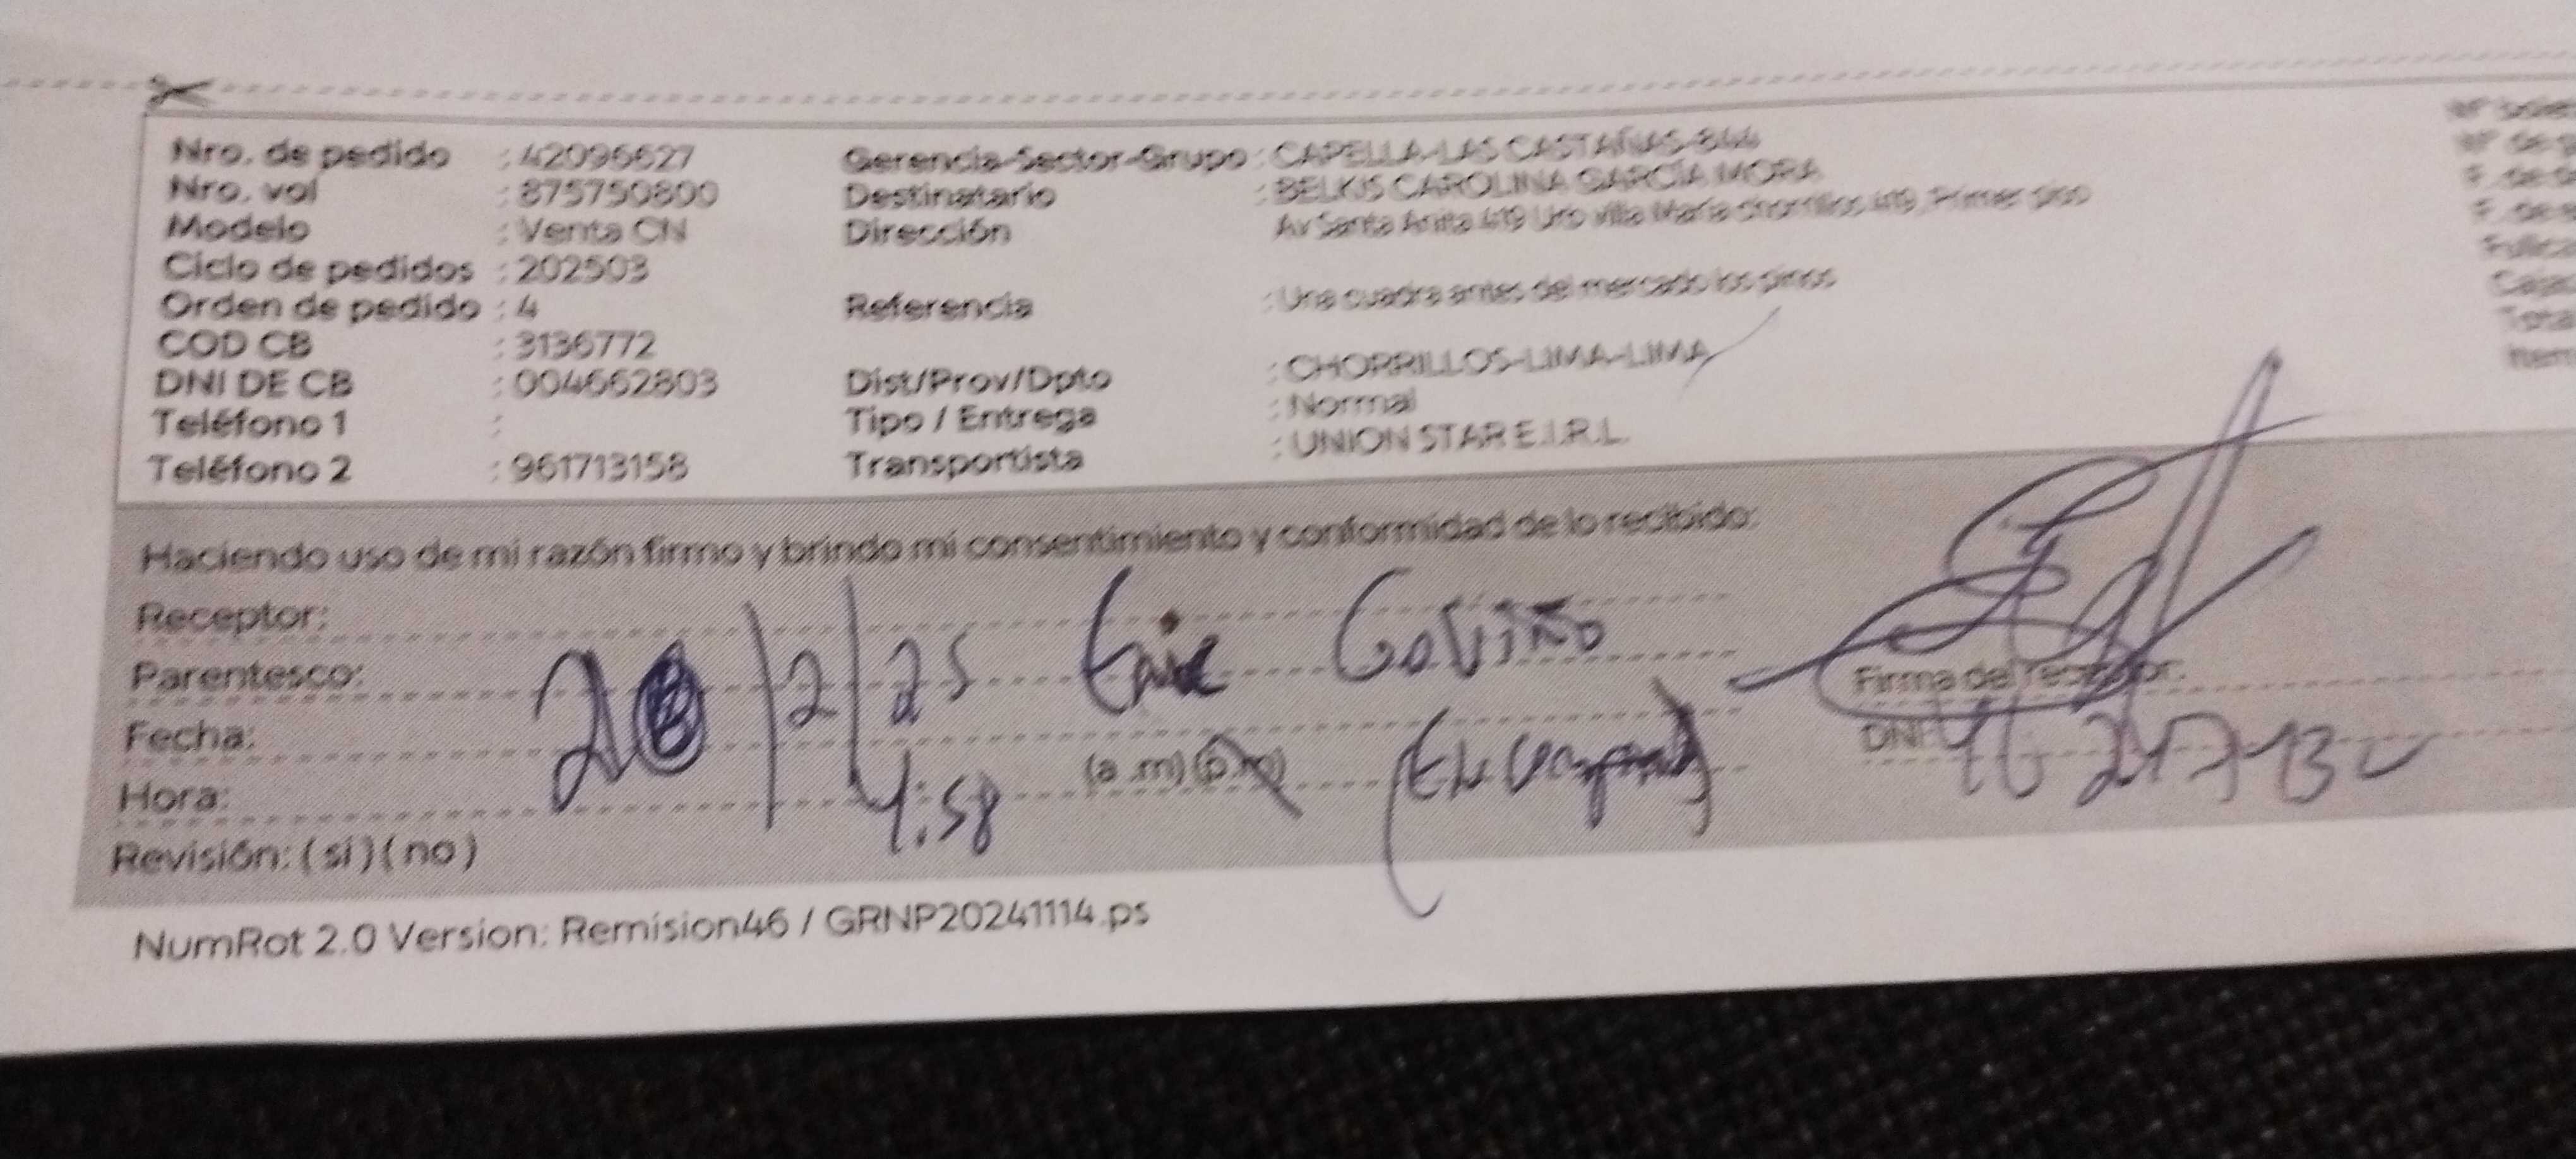 Nro. de pedido : 42096627
Nro. vol : 875750800
Modelo : Venta CN
Ciclo de pedidos : 202503
Orden de pedido : 4
COD CB : 3136772
DNI DE CB : 004662803
Teléfono 1 :
Teléfono 2 : 961713158
Gerencia-Sector-Grupo : CAPELLA-LAS CASTAÑAS-844
Destinatario : BELKIS CAROLINA GARCÍA MORA
Dirección Av Santa Anita 419 Urb villa María chorrillos 419, Primer piso
Referencia : Una cuadra antes del mercado los pinos
Dist/Prov/Dpto : CHORRILLOS-LIMA-LIMA
Tipo / Entrega : Normal
Transportista : UNION STAR E.I.R.L.
Haciendo uso de mi razón firmo y brindo mi consentimiento y conformidad de lo recibido:
Receptor:
Parentesco:
Fecha: /2/25
Hora: 4:58 (a .m) (p.m)
Revisión: ( si ) ( no )
Firma del receptor:
DNI
NumRot 2.0 Version: Remision46 / GRNP20241114.ps